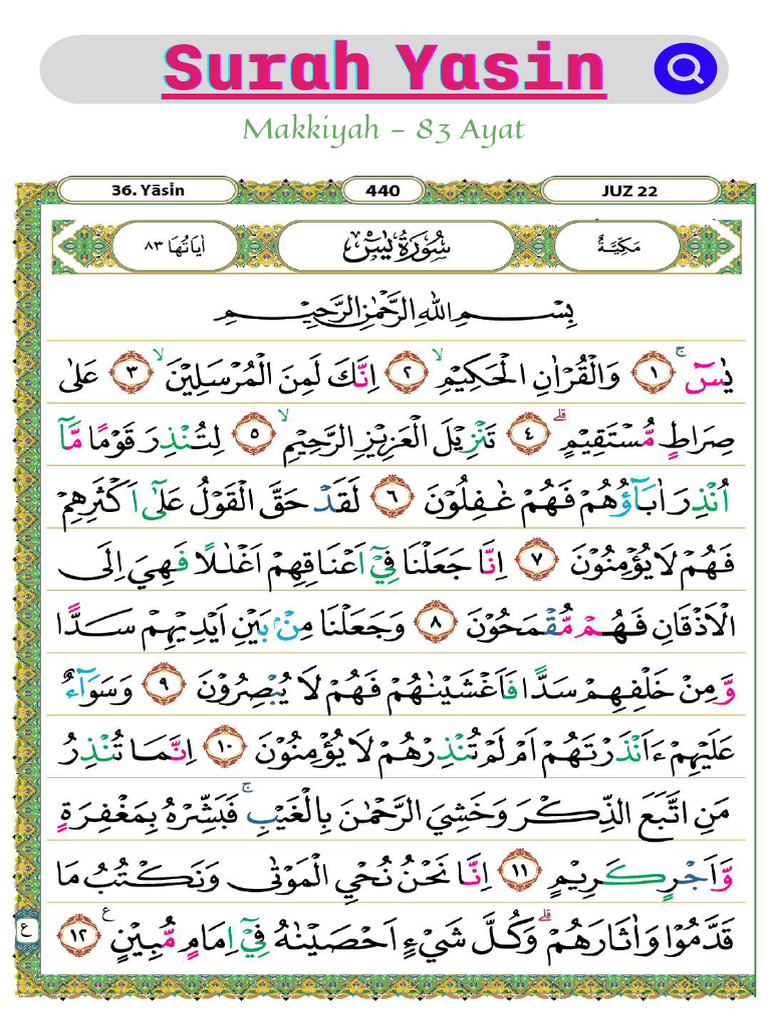 Surah Yasin
Makkiyah – 83 Ayat
36. Yāsin 440 JUZ 22
مَكِّيَّةٌ سُوْرَةُ يٰسۤ اٰيَاتُهَا ٨٣
بِسْمِ اللّٰهِ الرَّحْمٰنِ الرَّحِيْمِ
يٰسۤ ۚ ١ وَالْقُرْاٰنِ الْحَكِيْمِۙ ٢ اِنَّكَ لَمِنَ الْمُرْسَلِيْنَۙ ٣ عَلٰى
صِرَاطٍ مُّسْتَقِيْمٍۗ ٤ تَنْزِيْلَ الْعَزِيْزِ الرَّحِيْمِۙ ٥ لِتُنْذِرَ قَوْمًا مَّآ
اُنْذِرَ اٰبَاۤؤُهُمْ فَهُمْ غٰفِلُوْنَ ٦ لَقَدْ حَقَّ الْقَوْلُ عَلٰٓى اَكْثَرِهِمْ
فَهُمْ لَا يُؤْمِنُوْنَ ٧ اِنَّا جَعَلْنَا فِيْٓ اَعْنَاقِهِمْ اَغْلٰلًا فَهِيَ اِلَى
الْاَذْقَانِ فَهُمْ مُّقْمَحُوْنَ ٨ وَجَعَلْنَا مِنْۢ بَيْنِ اَيْدِيْهِمْ سَدًّا
وَّمِنْ خَلْفِهِمْ سَدًّا فَاَغْشَيْنٰهُمْ فَهُمْ لَا يُبْصِرُوْنَ ٩ وَسَوَاۤءٌ
عَلَيْهِمْ ءَاَنْذَرْتَهُمْ اَمْ لَمْ تُنْذِرْهُمْ لَا يُؤْمِنُوْنَ ١٠ اِنَّمَا تُنْذِرُ
مَنِ اتَّبَعَ الذِّكْرَ وَخَشِيَ الرَّحْمٰنَ بِالْغَيْبِۚ فَبَشِّرْهُ بِمَغْفِرَةٍ
وَّاَجْرٍ كَرِيْمٍ ١١ اِنَّا نَحْنُ نُحْيِ الْمَوْتٰى وَنَكْتُبُ مَا
قَدَّمُوْا وَاٰثَارَهُمْۗ وَكُلَّ شَيْءٍ اَحْصَيْنٰهُ فِيْٓ اِمَامٍ مُّبِيْنٍ ࣖ ١٢
ع